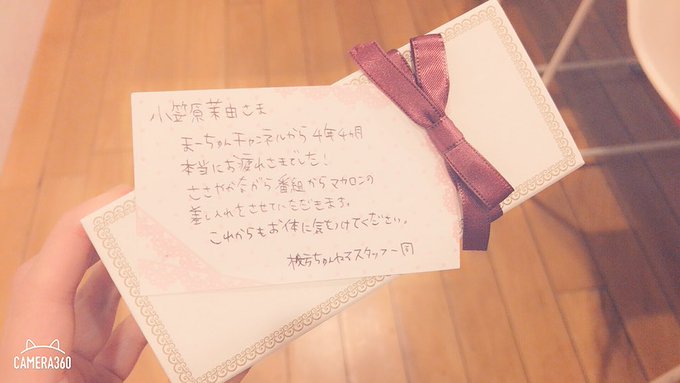 小笠原茉由さま
まーちゅんチャンネルから4年4ヵ月
本当にお疲れさまでした!
ささやかながら番組からマカロンの
差し入れをさせていただきます。
これからもお体に気をつけてください。
ちゃんねるスタッフ一同
CAMERA360